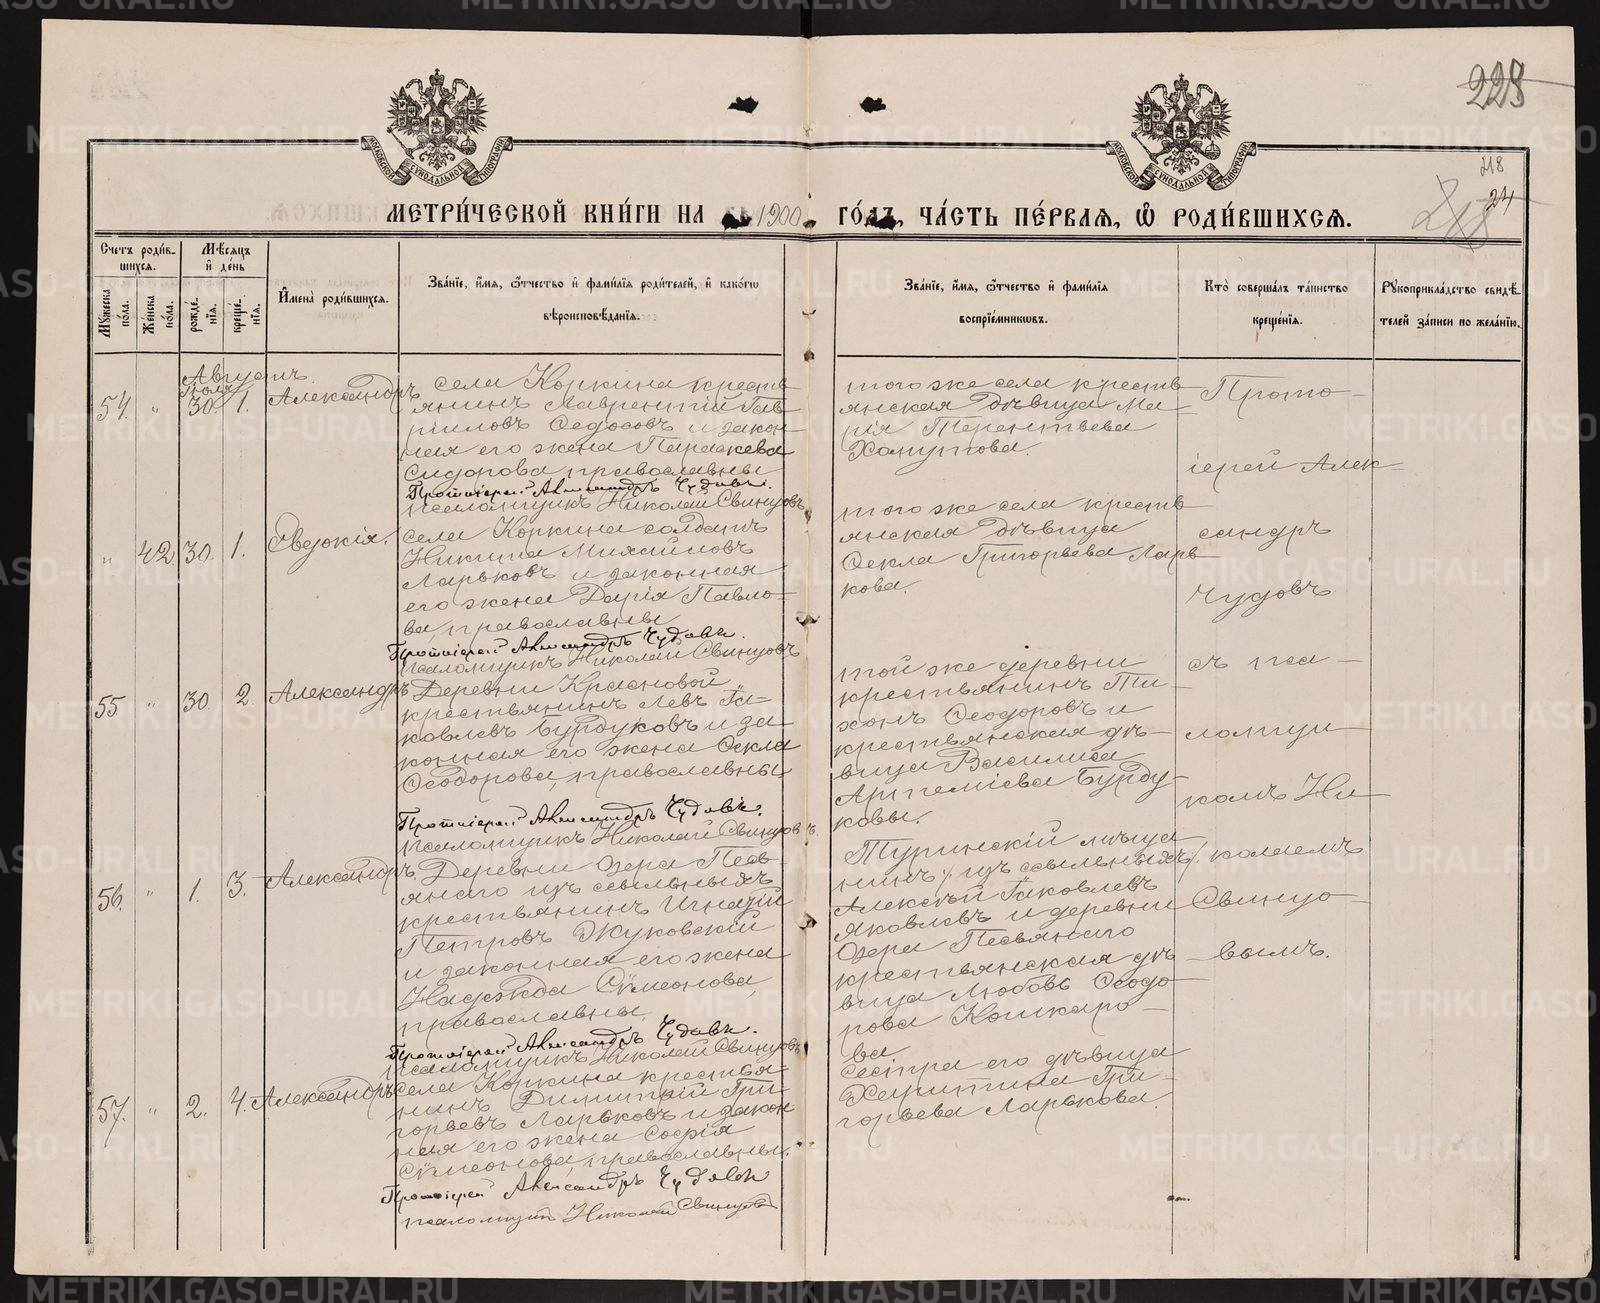 228
218
24
МОСКОВСКОЙ СУНОДАЛЬНОЙ ТИПОГРАФІИ
МОСКОВСКОЙ СУНОДАЛЬНОЙ ТИПОГРАФІИ
МЕТРИ́ЧЕСКОЙ КНИ́ГИ НА 1900 ГО́ДЪ, ЧА́СТЬ ПЕ́РВАѦ, Ѡ҆ РОДИ́ВШИХСѦ.
Счетъ роди́в-
шихся.
Мѣ́сяцъ
и҆ де́нь
Му́жеска
по́ла.
Же́нска
по́ла.
рожде́-
нїя.
креще́-
нїя.
И҆мена̀ роди́вшихся.
Зва́нїе, и҆́мя, ѻ҆́тчество и҆ фами́лїя роди́телей, и҆ како́гѡ
вѣроисповѣ́данїя.
Зва́нїе, и҆́мя, ѻ҆́тчество и҆ фами́лїя
воспрїе́мникѡвъ.
Кто̀ соверша́лъ та́инство
креще́нїя.
Рꙋкоприкла́дство свидѣ́-
телей за́писи по жела́нїю.
Августъ
Іюля
54. " 30. 1. Александръ,
села Коркина кресть-
янинъ Лаврентій Гав-
риловъ Ѳедосовъ и закон-
ная его жена Параскева
Сидорова, православны
Протоіерей Александръ Чудовъ.
псаломщикъ Николай Свинцовъ
того же села кресть-
янская дѣвица Ма-
рія Терентьева
Хомутова.
" 42 30. 1. Евдокія.
села Коркина солдатъ
Никита Михайловъ
Ларьковъ и законная
его жена Дарія Павло-
ва, православны
Протоіерей Александръ Чудовъ.
псаломщикъ Николай Свинцовъ
того же села кресть-
янская дѣвица
Ѳекла Григорьева Ларь-
кова.
55 " 30. 2. Александръ
Деревни Красновой,
крестьянинъ Левъ Іа-
ковлевъ Бурдуковъ и за-
конная его жена Ѳекла
Ѳеодорова, православны
Протоіерей Александръ Чудовъ.
псаломщикъ Николай Свинцовъ
той же деревни
крестьянинъ Ти-
хонъ Ѳеодоровъ и
крестьянская дѣ-
вица Василиса
Артеміева Бурду-
ковы.
56. " 1. 3. Александръ,
Деревни Озера Песь-
янаго изъ ссыльныхъ
крестьянинъ Игнатій
Петровъ Жуковскій
и законная его жена
Надежда Сѵмеонова,
православны.
Протоіерей Александръ Чудовъ.
псаломщикъ Николай Свинцовъ
Туринскій мѣща-
нинъ /изъ ссыльныхъ/
Алексѣй Іаковлевъ
Яковлевъ и деревни
Озера Песьянаго
крестьянская дѣ-
вица Любовь Ѳеодо-
рова Кошкаро-
ва
57. " 2. 4. Александръ
села Коркина крестья-
нинъ Димитрій Гри-
горьевъ Ларьковъ и закон
ная его жена Софія
Сѵмеонова, православны.
Протоіерей Александръ Чудовъ
псаломщикъ Николай Свинцовъ
Сестра его дѣвица
Харитина Гри-
горьева Ларькова.
Прото-
іерей Алек-
сандръ
Чудовъ
съ пса-
ломщи-
комъ Ни-
колаемъ
Свинцо-
вымъ.
METRIKI.GASO-URAL.RU